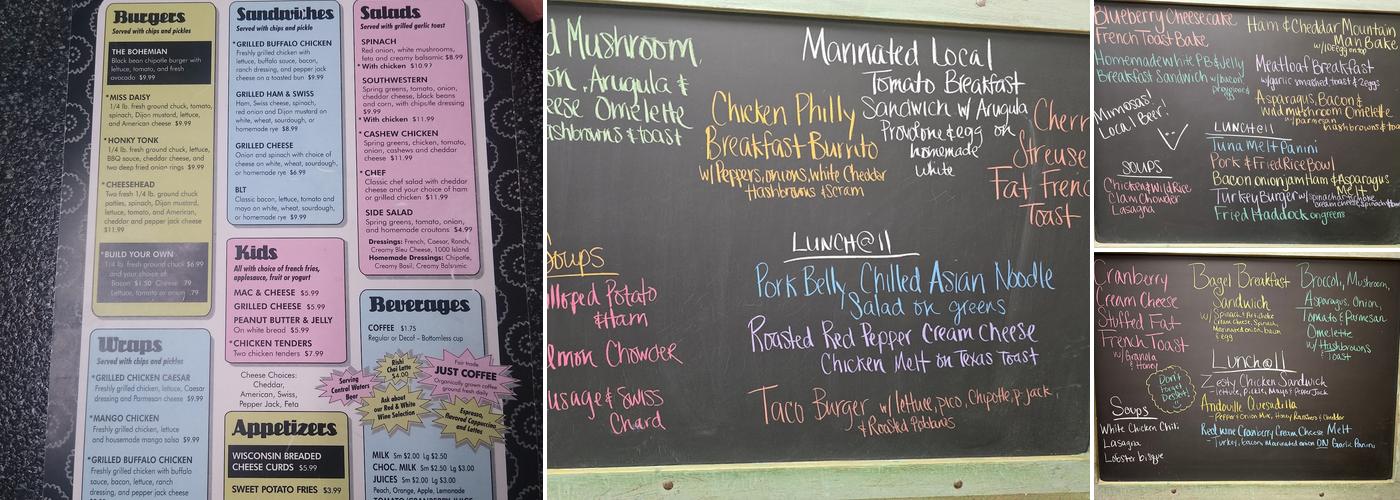 Burgers
Served with chips and pickles
THE BOHEMIAN
Black bean chipotle burger with
lettuce, tomato, and fresh
avocado $9.99
*MISS DAISY
1/4 lb. fresh ground chuck, tomato,
spinach, Dijon mustard, lettuce,
and American cheese $9.99
*HONKY TONK
1/4 lb. fresh ground chuck, lettuce,
BBQ sauce, cheddar cheese, and
two deep fried onion rings $9.99
*CHEESEHEAD
Two fresh 1/4 lb. ground chuck
patties, spinach, Dijon mustard,
lettuce, tomato, and American,
cheddar and pepper jack cheese
$11.99
*BUILD YOUR OWN
1/4 lb. fresh ground chuck $6.99
and your choice of:
Bacon $1.50 Cheese .79
Lettuce, tomato or onion .79
Wraps
Served with chips and pickles
*GRILLED CHICKEN CAESAR
Freshly grilled chicken, lettuce, Caesar
dressing and Parmesan cheese $9.99
*MANGO CHICKEN
Freshly grilled chicken, lettuce
and housemade mango salsa $9.99
*GRILLED BUFFALO CHICKEN
Freshly grilled chicken with buffalo
sauce, bacon, lettuce, ranch
dressing, and pepper jack cheese
Sandwiches
Served with chips and pickle
*GRILLED BUFFALO CHICKEN
Freshly grilled chicken with
lettuce, buffalo sauce, bacon,
ranch dressing, and pepper jack
cheese on a toasted bun $9.99
GRILLED HAM & SWISS
Ham, Swiss cheese, spinach,
red onion and Dijon mustard on
white, wheat, sourdough, or
homemade rye $8.99
GRILLED CHEESE
Onion and spinach with choice of
cheese on white, wheat, sourdough,
or homemade rye $6.99
BLT
Classic bacon, lettuce, tomato and
mayo on white, wheat, sourdough,
or homemade rye $9.99
Kids
All with choice of french fries,
applesauce, fruit or yogurt
MAC & CHEESE $5.99
GRILLED CHEESE $5.99
PEANUT BUTTER & JELLY
On white bread $5.99
*CHICKEN TENDERS
Two chicken tenders $7.99
Cheese Choices:
Cheddar,
American, Swiss,
Pepper Jack, Feta
Appetizers
WISCONSIN BREADED
CHEESE CURDS $5.99
SWEET POTATO FRIES $3.99
Salads
Served with grilled garlic toast
SPINACH
Red onion, white mushrooms,
feta and creamy balsamic $8.99
*With chicken $10.97
SOUTHWESTERN
Spring greens, tomato, onion,
cheddar cheese, black beans
and corn, with chipotle dressing
$9.99
*With chicken $11.99
*CASHEW CHICKEN
Spring greens, chicken, tomato,
onion, cashews and cheddar
cheese $11.99
*CHEF
Classic chef salad with cheddar
cheese and your choice of ham
or grilled chicken $11.99
SIDE SALAD
Spring greens, tomato, onion,
and homemade croutons $4.99
Dressings: French, Caesar, Ranch,
Creamy Bleu Cheese, 1000 Island
Homemade Dressings: Chipotle,
Creamy Basil, Creamy Balsamic
Beverages
COFFEE $1.75
Regular or Decaf - Bottomless cup
Rishi
Chai Latte
$4.00
Serving
Central Waters
Beer
Ask about
our Red & White
Wine Selection
Fair trade
JUST COFFEE
Organically grown coffee
ground fresh daily
Espresso,
flavored Cappuccino
and Lattes
MILK Sm $2.00 Lg $2.50
CHOC. MILK Sm $2.50 Lg $3.00
JUICES Sm $2.00 Lg $3.00
Peach, Orange, Apple, Lemonade
d Mushroom,
on, Arugula &
eese Omelette
ashbrowns & toast
Chicken Philly
Breakfast Burrito
w/ Peppers, onions, white Cheddar
Hashbrowns & Scram
Marinated Local
Tomato Breakfast
Sandwich w/ Arugula
Provolone & egg on
homemade
white
Cherr
Streuse
Fat Frenc
Toast
Soups
lloped Potato
& Ham
emon Chowder
usage & Swiss
Chard
LUNCH@11
Pork Belly Chilled Asian Noodle
Salad on greens
Roasted Red Pepper Cream Cheese
Chicken Melt on Texas Toast
Taco Burger w/ lettuce, pico, Chipotle, p.jack,
& Roasted Poblanos
Blueberry Cheesecake
French Toast Bake
Homemade White PB & Jelly
Breakfast Sandwich w/ bacon
Mimosas!
Local Beer!
SOUPS
Chicken & Wild Rice
Clam Chowder
Lasagna
Ham & Cheddar Mountain
Man Bake
Meatloaf Breakfast
w/ garlic smashed toast & 2 eggs
Asparagus, Bacon &
wild mushroom Omelette
w/ parmesan
hashbrowns & to
LUNCH@11
Tuna Melt Panini
Pork & Fried Rice Bowl
Bacon onion jam Ham & Asparagus
Melt
Turkey Burger w/ spinach artichoke
Fried Haddock on greens
Cranberry
Cream Cheese
Stuffed Fat
French Toast
w/ Granola
& Honey
Bagel Breakfast
Sandwich
w/ Spinach & Artichoke
Cream Cheese, Spinach,
Marinated onion, bacon
& egg
Broccoli, Mushroom,
Asparagus, Onion,
Tomato & Parmesan
Omelette
w/ Hashbrowns
& Toast
Don't
Forget
Dessert!
Soups
White Chicken Chili
Lasagna
Lobster bisque
Lunch@11
Zesty Chicken Sandwich
- lettuce, Pickle, Mayo & Pepper Jack
Andouille Quesadilla
- Pepper & Onion Mix, Honey Ranchero & Cheddar
Red wine Cranberry Cream Cheese Melt
- Turkey, bacon, Marinated onion ON Garlic Panini